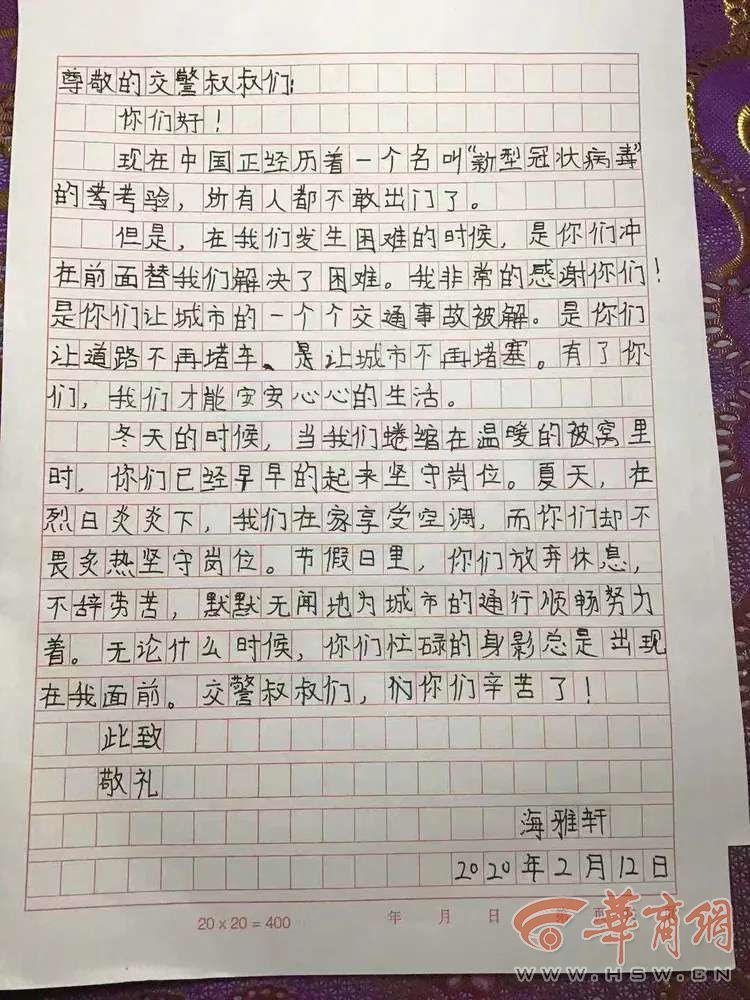 尊敬的交警叔叔们:
你们好！
现在中国正经历着一个名叫“新型冠状病毒”
的考验，所有人都不敢出门了。
但是，在我们发生困难的时候，是你们冲
在前面替我们解决了困难。我非常的感谢你们！
是你们让城市的一个个交通事故被解。是你们
让道路不再堵车、是让城市不再堵塞。有了你
们，我们才能安安心心的生活。
冬天的时候，当我们蜷缩在温暖的被窝里
时，你们已经早早的起来坚守岗位。夏天，在
烈日炎炎下，我们在家享受空调，而你们却不
畏炙热坚守岗位。节假日里，你们放弃休息，
不辞劳苦，默默无闻地为城市的通行顺畅努力
着。无论什么时候，你们忙碌的身影总是出现
在我面前。交警叔叔们，你们辛苦了！
此致
敬礼
海雅轩
2020年2月12日
20×20=400 年 月 日 第 页
華商網
WWW.HSW.CN